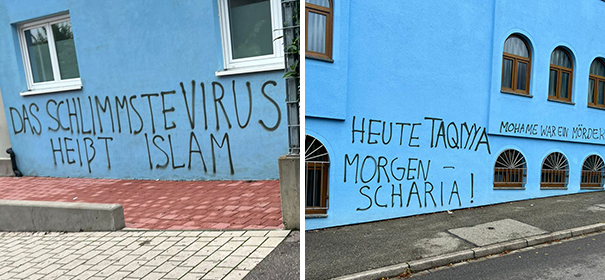 DAS SCHLIMMSTE VIRUS
HEIßT ISLAM
HEUTE TAQIYYA
MORGEN –
SCHARIA!
MOHAME WAR EIN MÖRDER